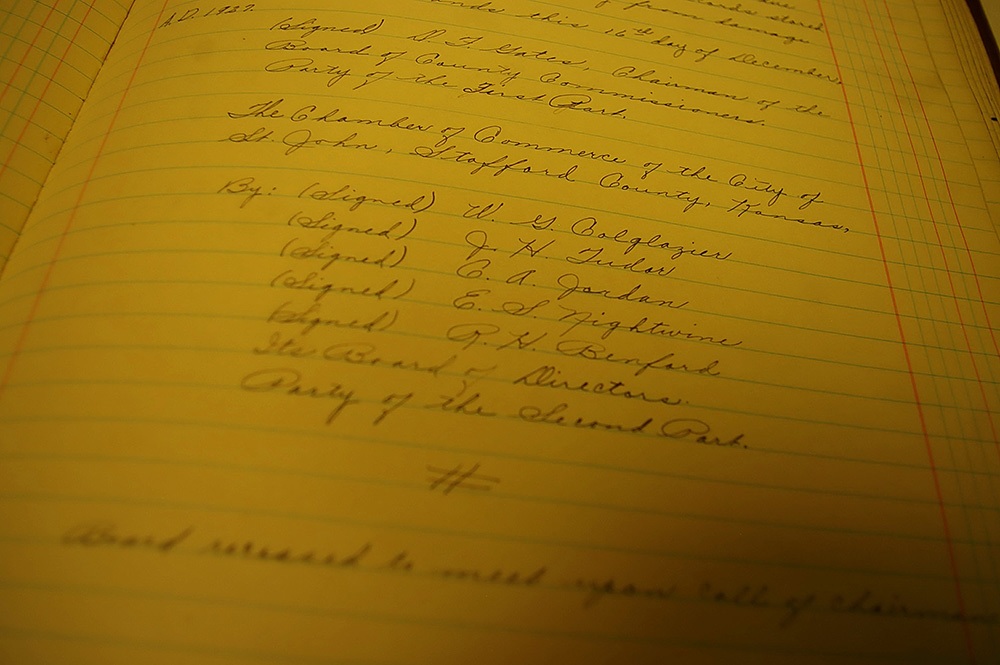 from damage
this 16th day of December,
A.D. 1927.
(Signed) D. F. Gates, Chairman of the
Board of County Commissioners.
Party of the First Part.
The Chamber of Commerce of the City of
St. John, Stafford County, Kansas,
By: (Signed) W. G. Colglazier
(Signed) J. H. Tudor
(Signed) C. A. Jordan
(Signed) E. S. Nightwine
(Signed) R. H. Benford
Its Board of Directors.
Party of the Second Part.
#
Board recessed to meet upon call of chairman